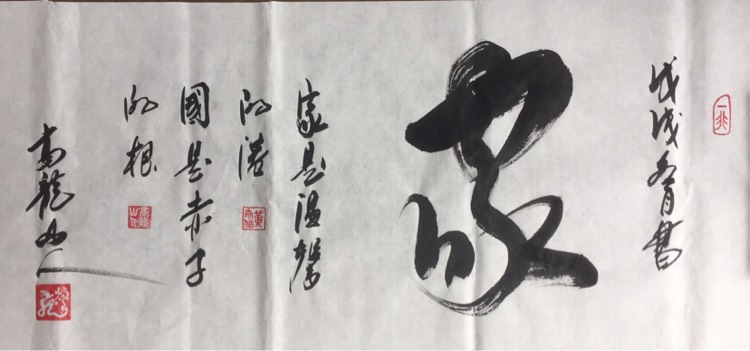 戊戌冬月書
家
家是温馨
的港
國是赤子
的根
高龍山人